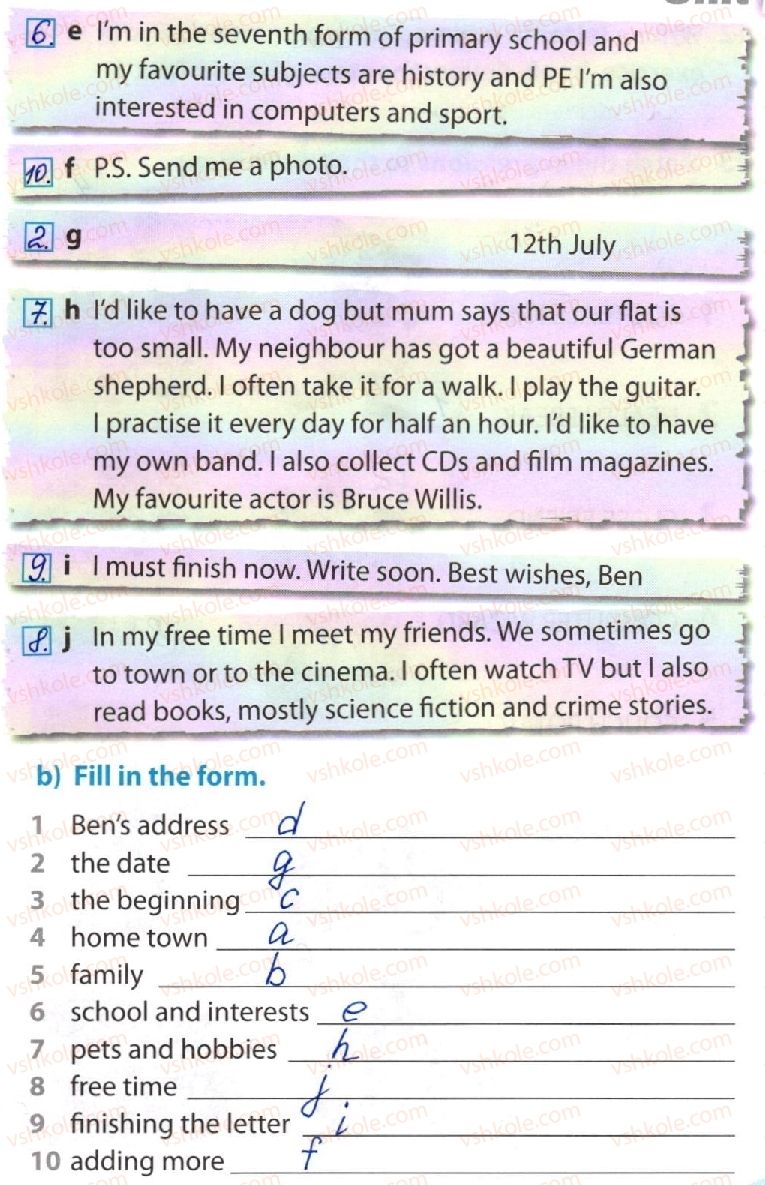 6. e I'm in the seventh form of primary school and
my favourite subjects are history and PE I'm also
interested in computers and sport.
10. f P.S. Send me a photo.
2. g 12th July
7. h I'd like to have a dog but mum says that our flat is
too small. My neighbour has got a beautiful German
shepherd. I often take it for a walk. I play the guitar.
I practise it every day for half an hour. I'd like to have
my own band. I also collect CDs and film magazines.
My favourite actor is Bruce Willis.
9. i I must finish now. Write soon. Best wishes, Ben
8. j In my free time I meet my friends. We sometimes go
to town or to the cinema. I often watch TV but I also
read books, mostly science fiction and crime stories.
b) Fill in the form.
1 Ben's address d
2 the date g
3 the beginning c
4 home town a
5 family b
6 school and interests e
7 pets and hobbies h
8 free time j
9 finishing the letter i
10 adding more f
vshkole.com